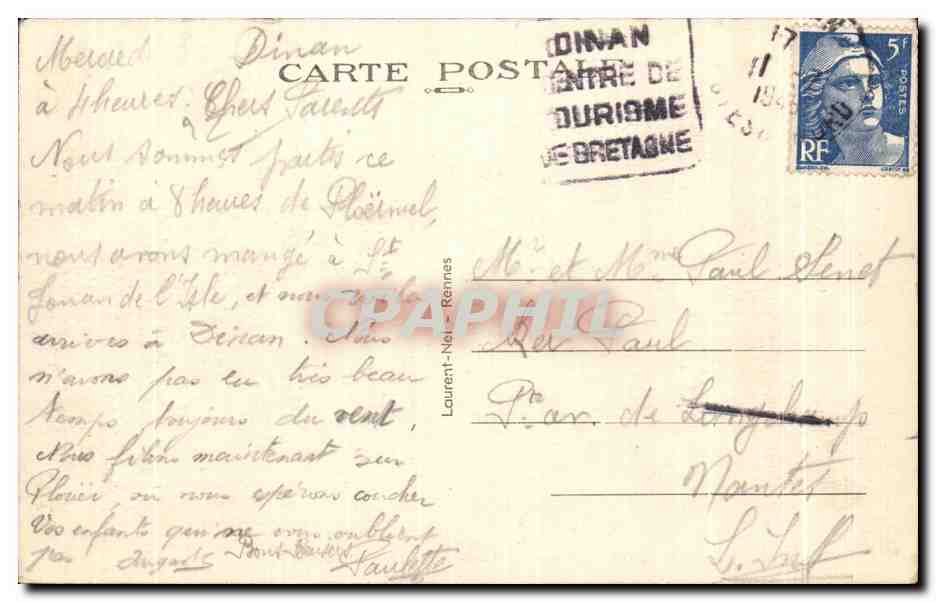 Mercredi Dinan
CARTE POSTALE
à 4 heures. Chers Parents
Nous sommes partis ce
matin à 8 heures de Ploërmel,
nous avons mangé à St
Jouan de l'Isle, et nous voilà
arrivés à Dinan. Nous
n'avons pas eu très beau
temps toujours du vent,
Nous filons maintenant sur
Plouër, où nous espérons coucher
Vos enfants qui ne vous oublient
pas Bons Baisers
Paulette
DINAN
CENTRE DE
TOURISME
DE BRETAGNE
17
11
5F
POSTES
RF
Laurent-Nel - Rennes
CPAPHIL
Mr et Mme Paul
Paul
de Longchamp
Nantes
L. Inf